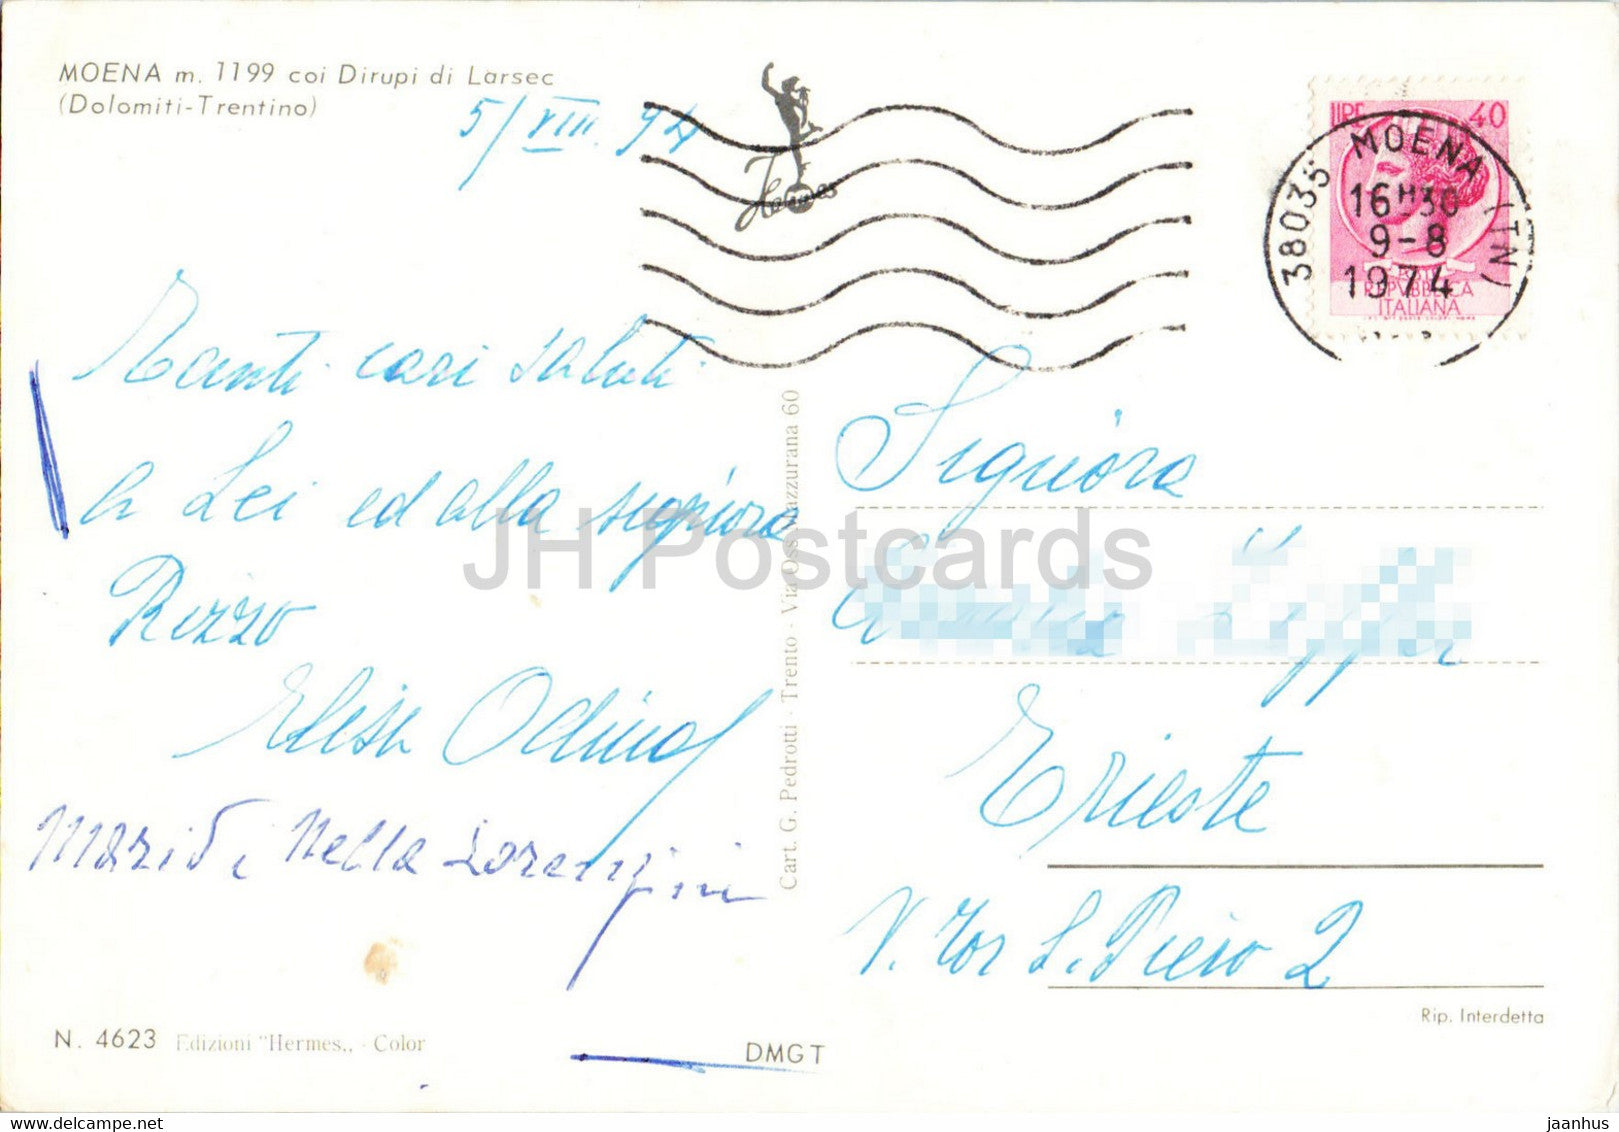 MOENA m. 1199 coi Dirupi di Larsec
(Dolomiti-Trentino)
5/VIII. 74
Hermes
LIRE 40
38035 MOENA (TN)
16H30
9-8
1974
POSTE
REPVBBLICA
ITALIANA
Tanti cari saluti
a Lei ed alla signora
Rizzo
Elisa
Nella Lorenzini
Cart. G. Pedrotti - Trento - Via Oss Mazzurana 60
Signora
Trieste
V. Tor S. Piero 2
Rip. Interdetta
N. 4623 Edizioni "Hermes,, - Color
DMGT
JH Postcards
jaanhus
www.delcampe.net